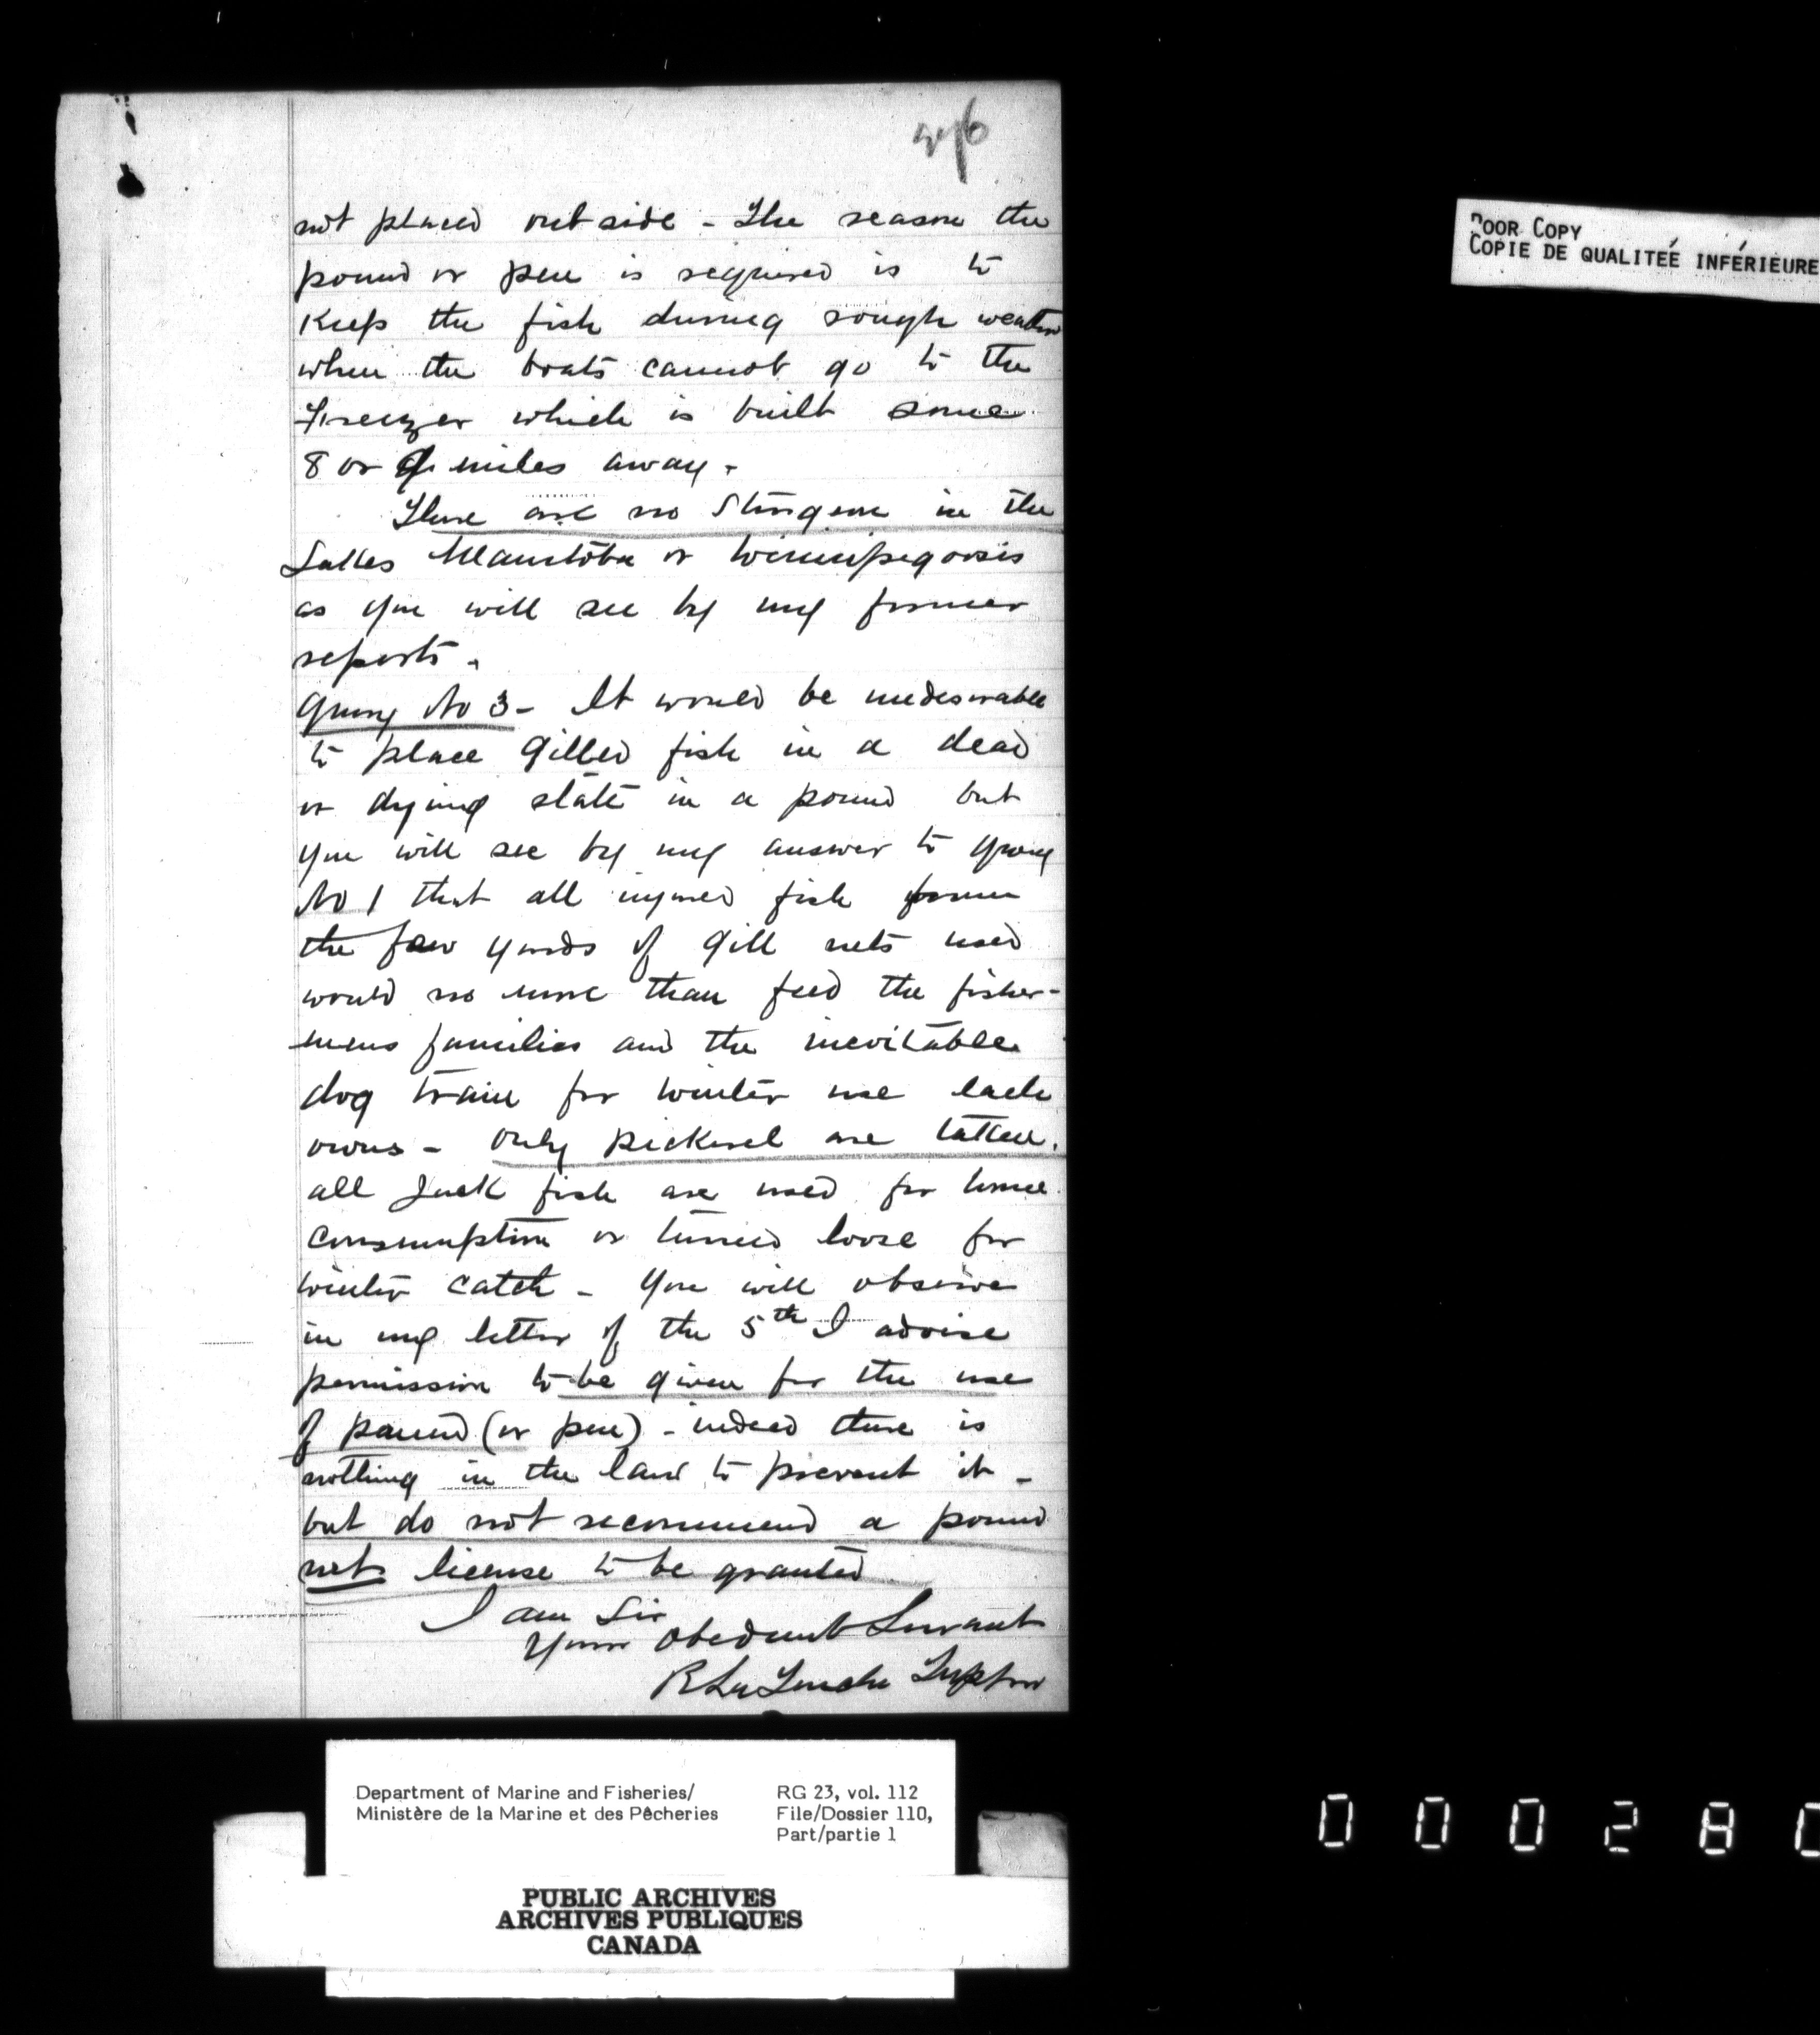 not placed outside - The reason the
pound or pen is required is to
Keep the fish during rough weather
when the boats cannot go to the
Freezer which is built some
8 or 9 miles away -
There are no Sturgeon in the
Lakes Manitoba or Winnipegosis
as you will see by my former
reports.
Query No 3 - It would be undesirable
to place Gilled fish in a dead
or dying state in a pound but
you will see by my answer to Query
No 1 that all injured fish from
the few yards of Gill nets used
would no more than feed the fisher-
mens families and the inevitable
dog train for winter use each
owns - Only pickerel are taken.
all Jack fish are used for home
consumption or turned loose for
winter catch - You will observe
in my letter of the 5th I advise
permission to be given for the use
of pound (or pen) - indeed there is
nothing in the law to prevent it -
but do not recommend a pound
net license to be granted
I am Sir
Your Obedient Servant
POOR COPY
COPIE DE QUALITÉE INFÉRIEURE
Department of Marine and Fisheries/
Ministère de la Marine et des Pêcheries
RG 23, vol. 112
File/Dossier 110,
Part/partie 1
PUBLIC ARCHIVES
ARCHIVES PUBLIQUES
CANADA
0 0 0 2 8